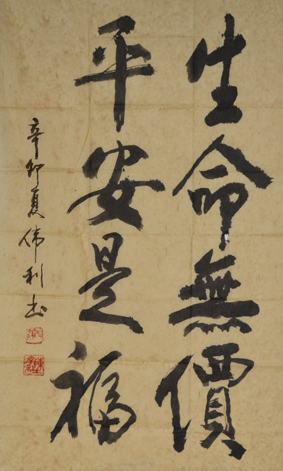 生命無價
平安是福
辛卯夏偉利书